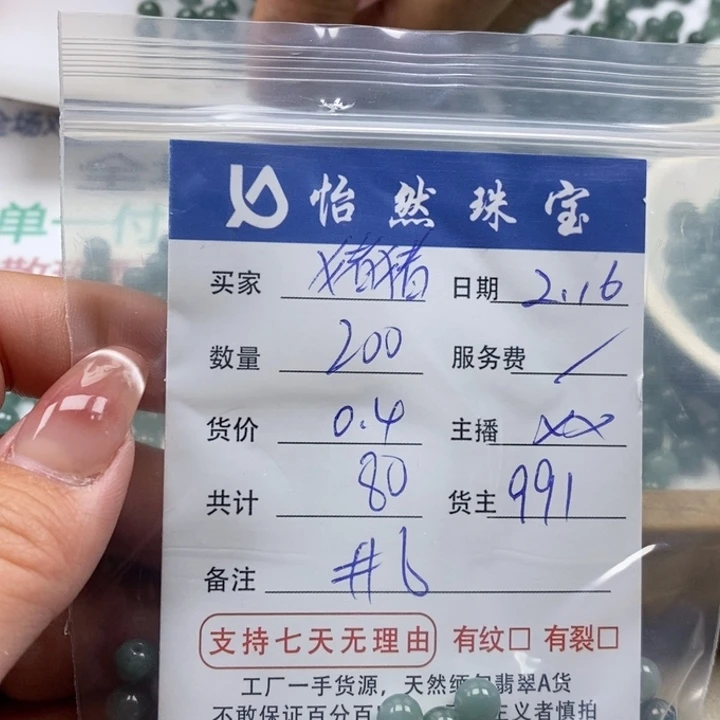 怡然珠宝
买家 猪猪 日期 2.16
数量 200 服务费 /
货价 0.4 主播 xx
共计 80 货主 991
备注 #6
支持七天无理由 有纹□ 有裂□
工厂一手货源,天然缅甸翡翠A货
不敢保证百分百 主义者慎拍
单一付